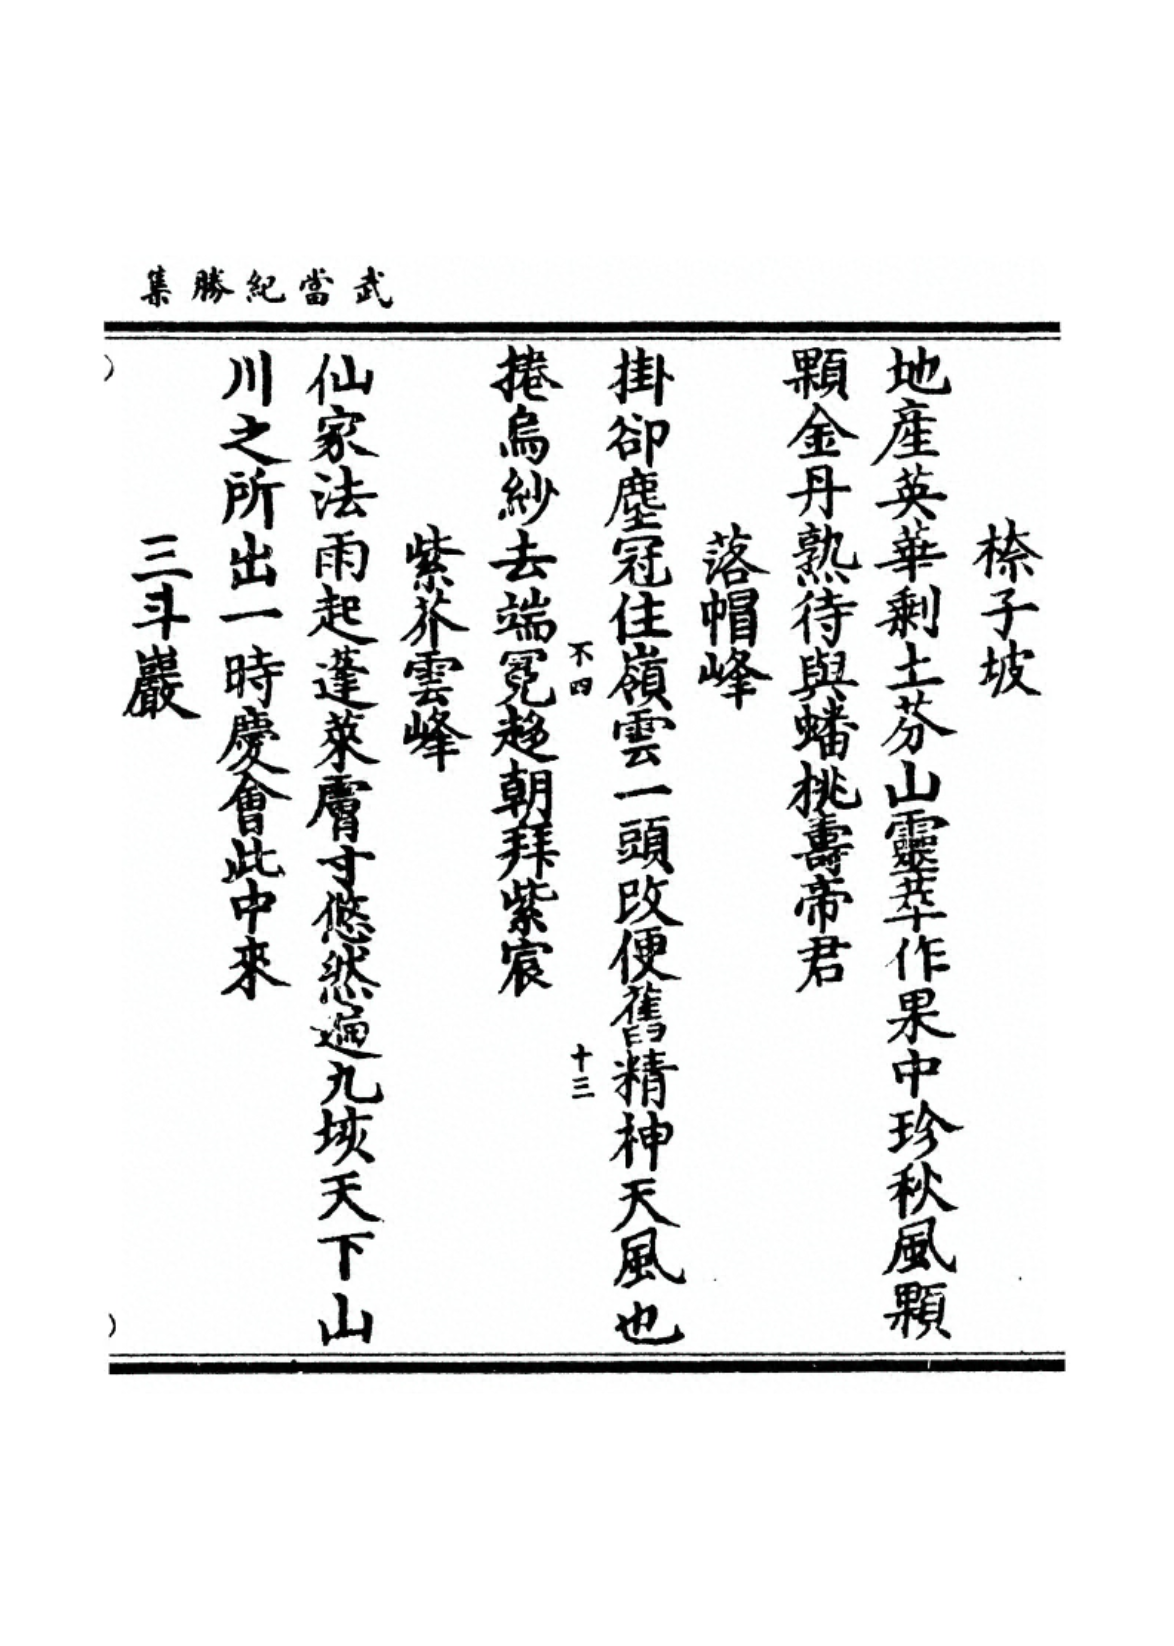 武當紀勝集
榛子坡
地産英華剩土芬山靈萃作果中珍秋風顆
顆金丹熟待與蟠桃壽帝君
落帽峰
掛卻塵冠住嶺雲一頭改便舊精神天風也
不四 十三
捲烏紗去端冕趍朝拜紫宸
紫芥雲峰
仙家法雨起蓬萊膚寸悠然遍九垓天下山
川之所出一時慶會此中來
三斗巖